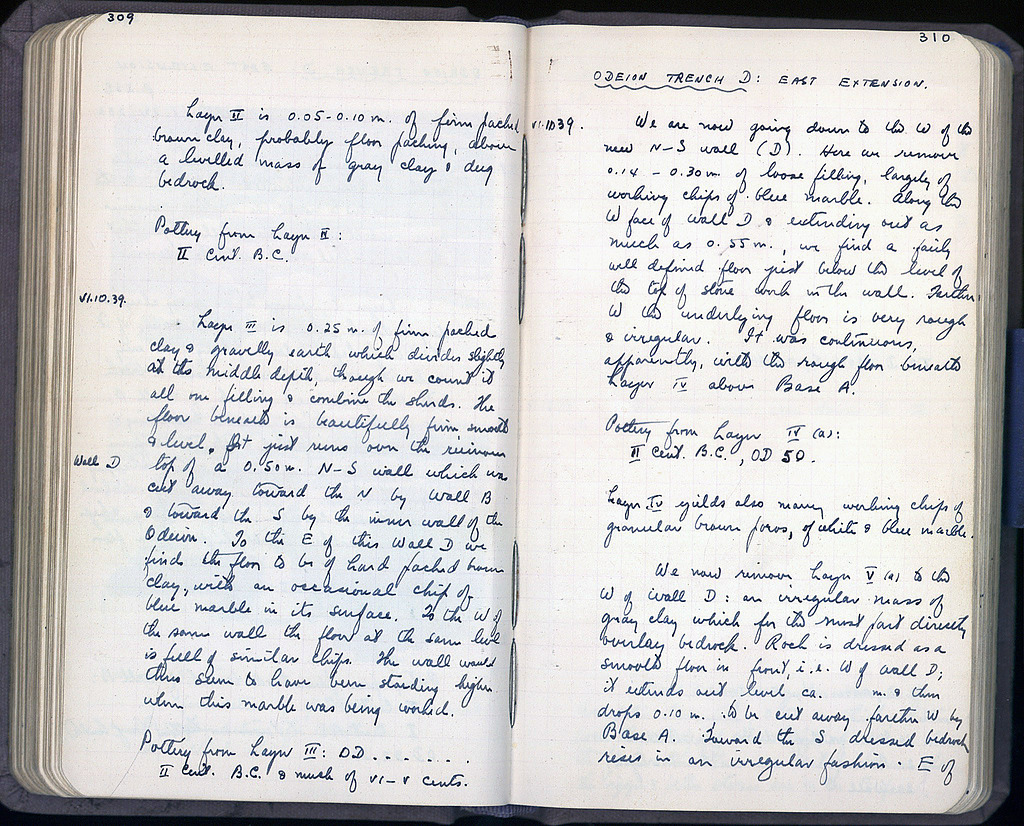 309
Layer II is 0.05-0.10 m. of firm packed
brown clay, probably floor packing, above
a levelled mass of gray clay & dug
bedrock.
Pottery from Layer II:
II Cent. B.C.
VI.10.39.
Layer III is 0.25 m. of firm packed
clay & gravelly earth which divides slightly
at the middle depth, though we count it
all one filling & combine the sherds. The
floor beneath is beautifully firm smooth
& level. It just runs over the ruinous
Wall D
top of a 0.50 m. N-S wall which was
cut away toward the N by Wall B
& toward the S by the inner wall of the
Odeion. To the E of this Wall D we
find the floor to be of hard packed brown
clay, with an occasional chip of
blue marble in its surface. To the W of
the same wall the floor at the same level
is full of similar chips. The wall would
thus seem to have been standing higher
when this marble was being worked.
Pottery from Layer III: OD . . . . . . .
II Cent. B.C. & much of VI-V cents.
310
ODEION TRENCH D: EAST EXTENSION.
VI.10.39.
We are now going down to the W of the
new N-S wall (D). Here we remove
0.14 - 0.30 m of loose filling, largely of
working chips of blue marble. Along the
W face of wall D & extending out as
much as 0.55 m., we find a fairly
well defined floor just below the level of
the top of stone work in the wall. Farther
W the underlying floor is very rough
& irregular. It was continuous,
apparently, with the rough floor beneath
Layer IV above Base A.
Pottery from Layer IV (a):
II Cent. B.C., OD 50.
Layer IV yields also many working chips of
granular brown poros, of white & blue marble.
We now remove Layer V (a) to the
W of wall D: an irregular mass of
gray clay which for the most part directly
overlay bedrock. Rock is dressed as a
smooth floor in front, i.e. W of wall D;
it extends out level ca. m. & then
drops 0.10 m. to be cut away farther W by
Base A. Toward the S dressed bedrock
rises in an irregular fashion. E of